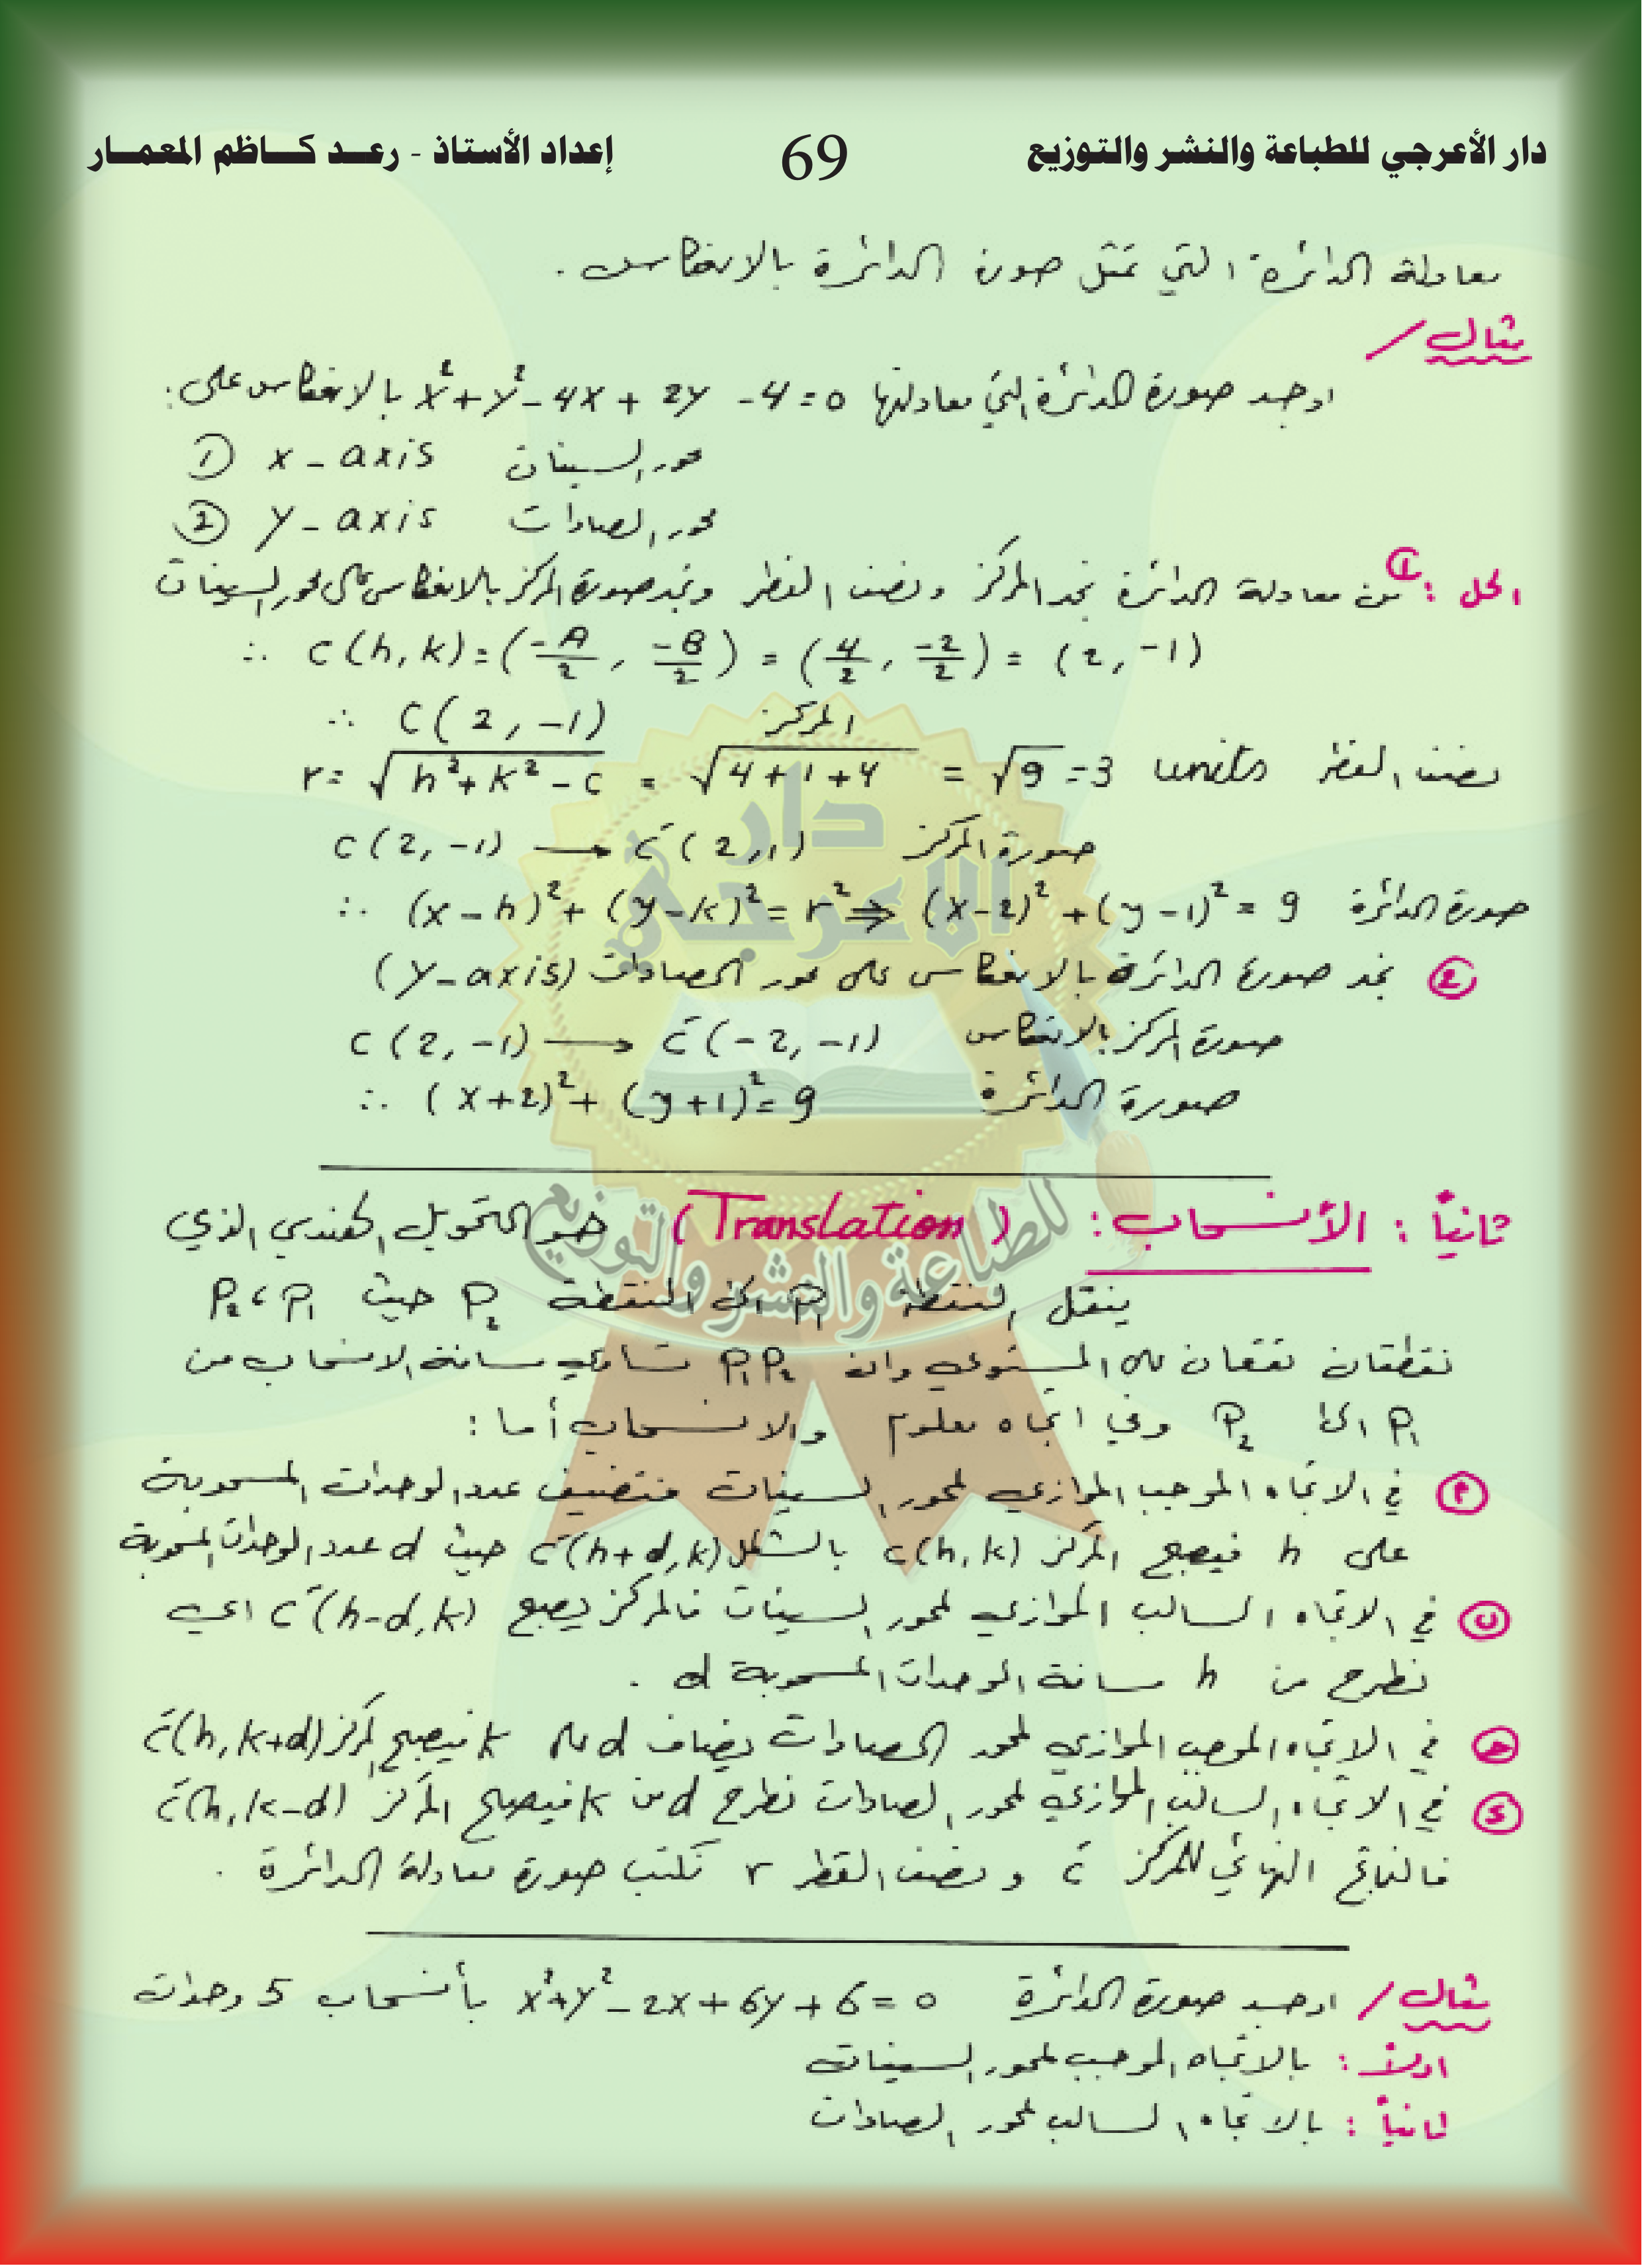 دار الأعرجي للطباعة والنشر والتوزيع 69 إعداد الأستاذ - رعد كاظم المعمار
معادلة الدائرة التي تمثل صورة الدائرة بالانعكاس .
مثال /
اوجد صورة الدائرة التي معادلتها x²+y²-4x+2y-4=0 بالانعكاس على :
① x-axis محور السينات
② y-axis محور الصادات
الحل : ① من معادلة الدائرة نجد المركز ونصف القطر ونجد صورة المركز بالانعكاس على محور السينات
∴ C(h,k)=(-A/2, -B/2) = (4/2, -2/2) = (2,-1)
∴ C(2,-1) المركز
r= √(h²+k²-c) = √(4+1+4) = √9 =3 units نصف القطر
C(2,-1) → C̄(2,1) صورة المركز
∴ (x-h)²+(y-k)²=r² ⇒ (x-2)²+(y-1)²=9 صورة الدائرة
② نجد صورة الدائرة بالانعكاس على محور الصادات (y-axis)
C(2,-1) → C̄(-2,-1) صورة المركز بالانعكاس
∴ (x+2)²+(y+1)²=9 صورة الدائرة
ثانياً : الأنسحاب : (Translation) هو التحويل الهندسي الذي
ينقل النقطة P₁ الى النقطة P₂ حيث P₁ ، P₂
نقطتان تقعان على المستوي وان P₁P₂ تساوي مسافة الانسحاب من
P₁ الى P₂ وفي اتجاه معلوم والانسحاب أما :
Ⓟ في الاتجاه الموجب الموازي لمحور السينات فتضيف عدد الوحدات المسحوبة
على h فيصبح المركز C(h,k) بالشكل C̄(h+d,k) حيث d عدد الوحدات المسحوبة
ⓑ في الاتجاه السالب الموازي لمحور السينات فالمركز يصبح C̄(h-d,k) اي
نطرح من h مسافة الوحدات المسحوبة d .
ⓗ في الاتجاه الموجب الموازي لمحور الصادات يضاف d على k فيصبح المركز C̄(h,k+d)
ⓓ في الاتجاه السالب الموازي لمحور الصادات نطرح d من k فيصبح المركز C̄(h,k-d)
فالناتج النهائي للمركز C̄ ونصف القطر r نكتب صورة معادلة الدائرة .
مثال / اوجد صورة الدائرة x²+y²-2x+6y+6=0 بأنسحاب 5 وحدات
اولاً : بالاتجاه الموجب لمحور السينات
ثانياً : بالاتجاه السالب لمحور الصادات
دار
الاعرجي
للطباعة والنشر والتوزيع